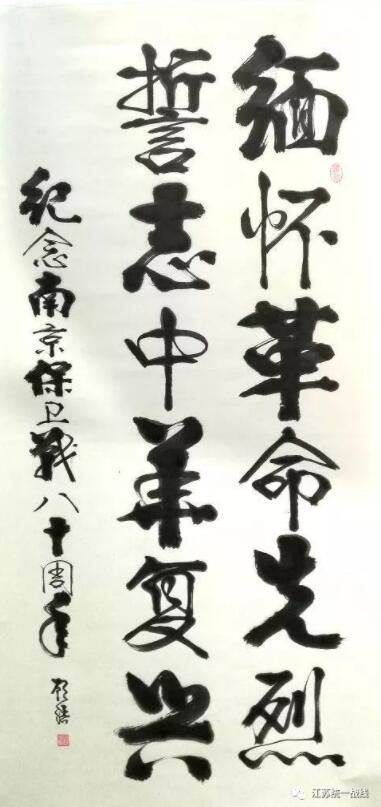 缅怀革命先烈
誓志中华复兴
纪念南京保卫战八十周年
顾浩
江苏统一战线